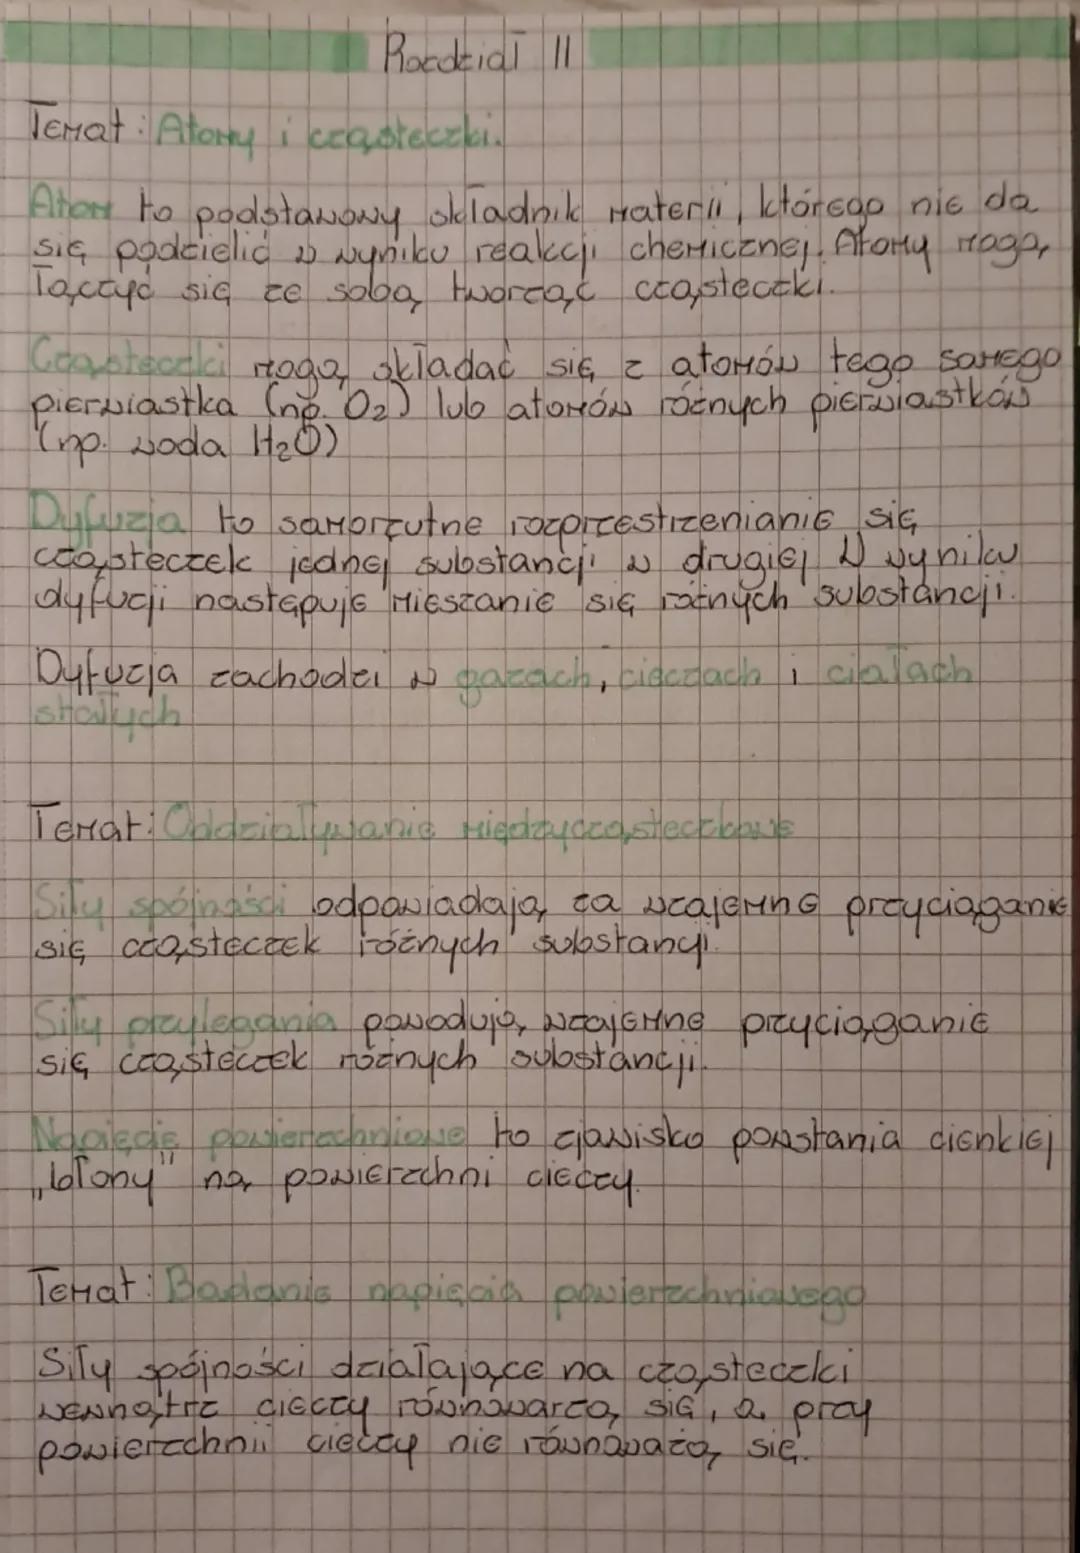 Rozdział II
Temat: Atomy i cząsteczki.
Atom to podstawowy składnik materii, którego nie da
się podzielić w wyniku reakcji chemicznej. Atomy mogą
łączyć się ze sobą tworząc cząsteczki.
Cząsteczki mogą składać się z atomów tego samego
pierwiastka (np. O₂) lub atomów różnych pierwiastków
(np. woda H₂O)
Dyfuzja to samorzutne rozprzestrzenianie się
cząsteczek jednej substancji w drugiej W wyniku
dyfuzji następuje mieszanie się różnych substancji.
Dyfuzja zachodzi w gazach, cieczach i ciałach
stałych
Temat: Oddziaływanie międzycząsteczkowe
Siły spójności odpowiadają za wzajemne przyciąganie
się cząsteczek różnych substancji.
Siły przylegania powodują wzajemne przyciąganie
się cząsteczek różnych substancji.
Napięcie powierzchniowe to zjawisko powstania cienkiej
„błony" na powierzchni cieczy.
Temat: Badanie napięcia powierzchniowego
Siły spójności działające na cząsteczki
wewnątrz cieczy równoważą się, a przy
powierzchnii cieczy nie równoważą się.